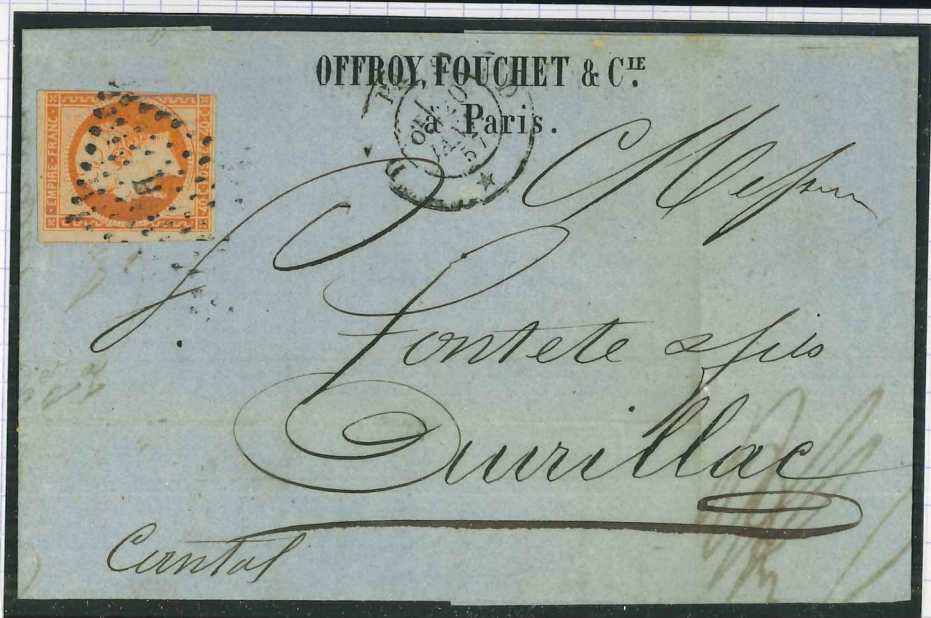 OFFROY, FOUCHET & Cⁱᴱ.
à Paris.
EMPIRE FRANC
Fontete & fils
Aurillac
Cantal